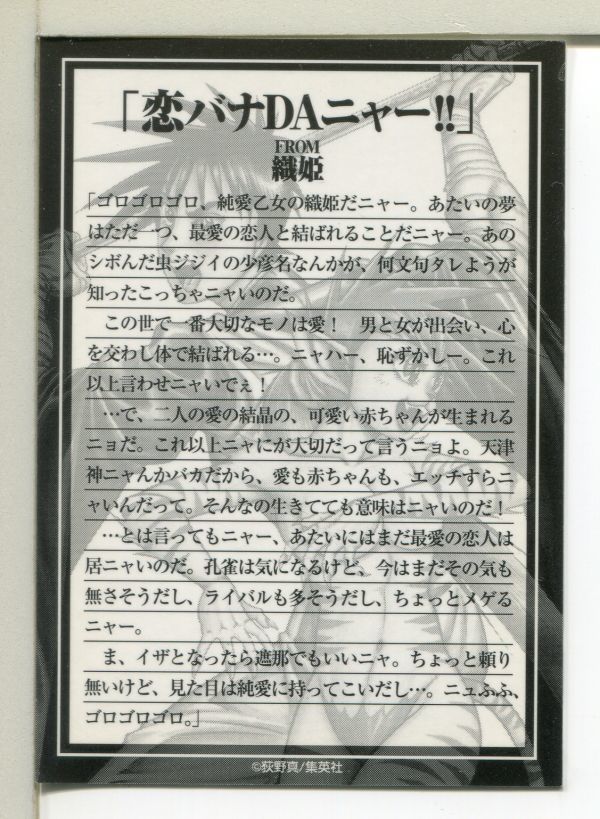 「恋バナDAニャー!!」
FROM
織姫
「ゴロゴロゴロ、純愛乙女の織姫だニャー。あたいの夢
はただ一つ、最愛の恋人と結ばれることだニャー。あの
シボんだ虫ジジイの少彦名なんかが、何文句タレようが
知ったこっちゃニャいのだ。
この世で一番大切なモノは愛！　男と女が出会い、心
を交わし体で結ばれる…。ニャハー、恥ずかしー。これ
以上言わせニャいでぇ！
…で、二人の愛の結晶の、可愛い赤ちゃんが生まれる
ニョだ。これ以上ニャにが大切だって言うニョよ。天津
神ニャんかバカだから、愛も赤ちゃんも、エッチすらニ
ャいんだって。そんなの生きてても意味はニャいのだ！
…とは言ってもニャー、あたいにはまだ最愛の恋人は
居ニャいのだ。孔雀は気になるけど、今はまだその気も
無さそうだし、ライバルも多そうだし、ちょっとメゲる
ニャー。
ま、イザとなったら遮那でもいいニャ。ちょっと頼り
無いけど、見た目は純愛に持ってこいだし…。ニュふふ、
ゴロゴロゴロ。」
©荻野真/集英社